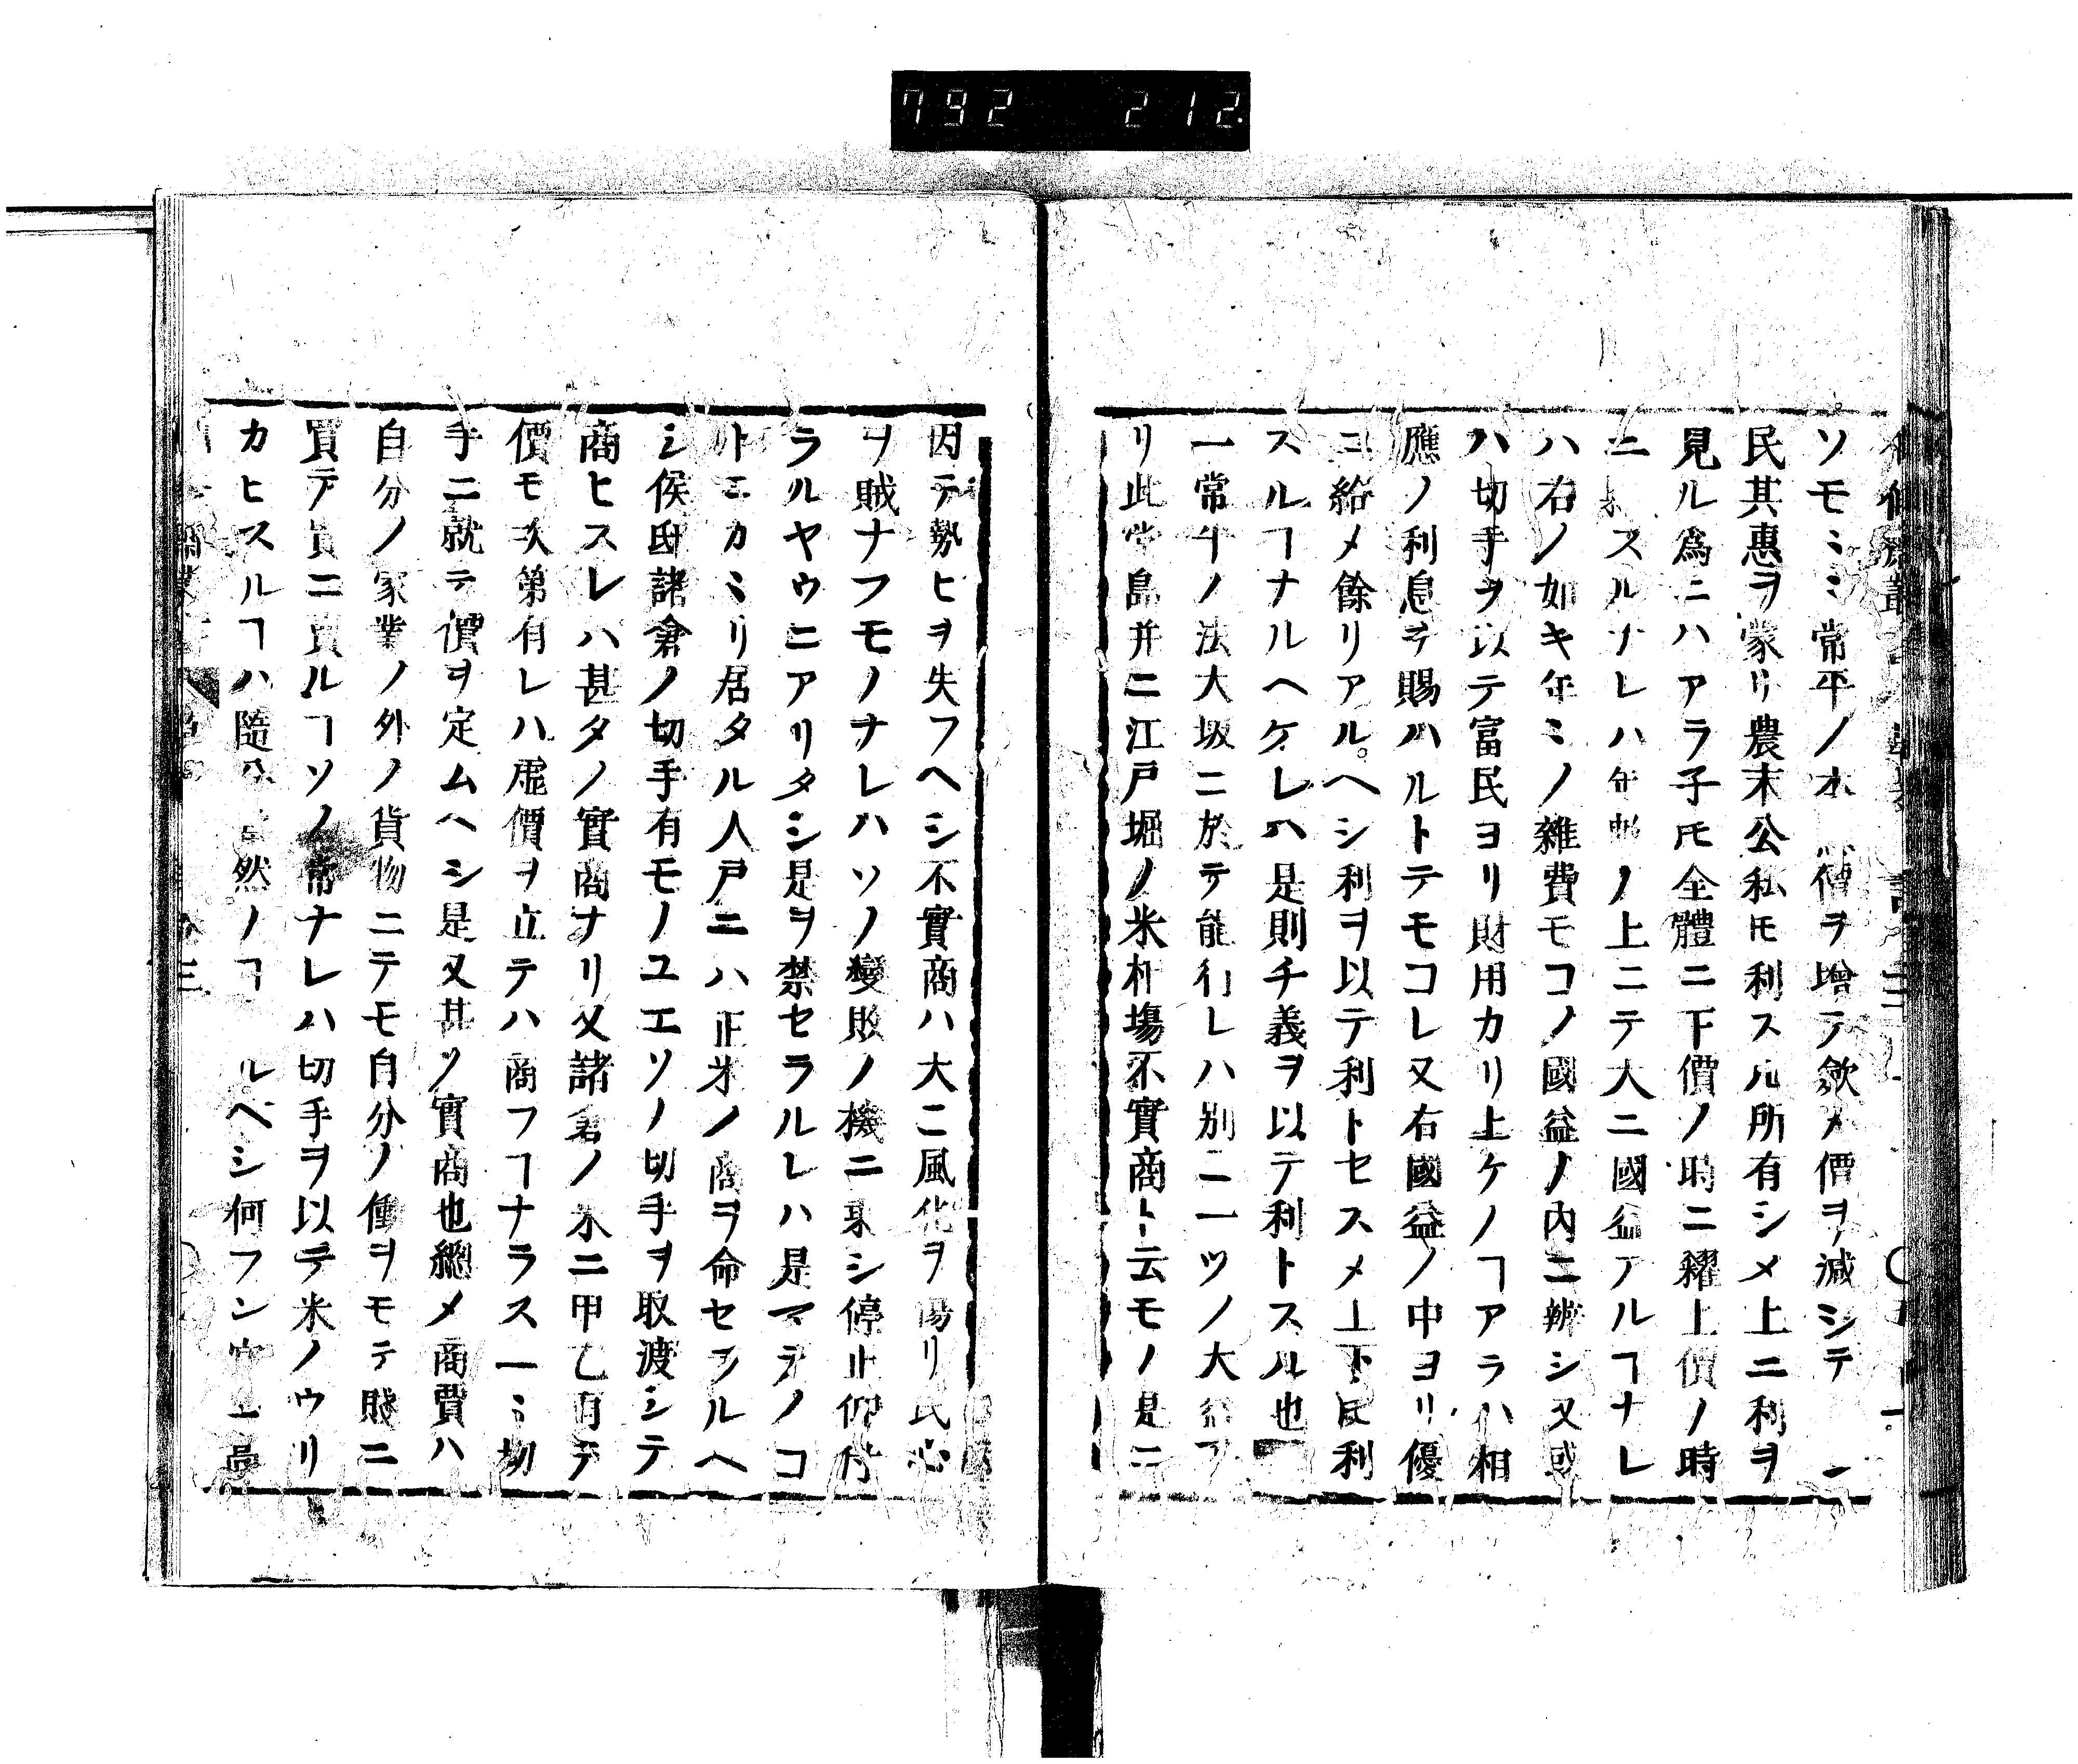 792 212
ソモミミ常平ノ本 價ヲ增テ斂メ價ヲ減シテ
民其惠ヲ蒙リ農末公私𪜈利ス凡所有シメ上ニ利ヲ
見ル爲ニハアラ子𪜈全體ニ下價ノ時ニ糴上價ノ時
ニ スルナレハ年 ノ上ニテ大ニ國益アルヿナレ
ハ右ノ如キ年ミノ雜費モコノ國益ノ內ニ辨シ又或
ハ切手ヲ以テ富民ヨリ財用カリ上ケノヿアラハ相
應ノ利息ヲ賜ハルトテモコレ又右國益ノ中ヨリ優
ニ給メ餘リアル。ヘシ利ヲ以テ利トセスメ上下𪜈利
スルヿナルヘケレハ是則チ義ヲ以テ利トスル也
一常平ノ法大坂ニ於テ能行レハ別ニ一ツノ大益ア
リ此堂島并ニ江戸堀ノ米相塲不實商ト云モノ是ニ
因テ勢ヒヲ失フヘシ不實商ハ大ニ風化ヲ傷リ民心
ヲ賊ナフモノナレハソノ變敗ノ機ニ乘シ停止仰付
ラルヤウニアリタシ是ヲ禁セラルレハ是マテノコ
トニカミリ居タル人戸ニハ正米ノ商ヲ命セラルヘ
シ侯邸諸倉ノ切手有モノユエソノ切手ヲ取渡シテ
商ヒスレハ甚タノ實商ナリ又諸倉ノ米ニ甲乙有テ
價モ次第有レハ虛價ヲ立テハ商フヿナラス一ミ切
手ニ就テ價ヲ定ムヘシ是又甚ノ實商也總メ商賈ハ
自分ノ家業ノ外ノ貨物ニテモ自分ノ働ヲモテ賤ニ
買テ貴ニ賣ルヿソノ常ナレハ切手ヲ以テ米ノウリ
カヒスルヿハ隨分 然ノヿ ルベシ何フン